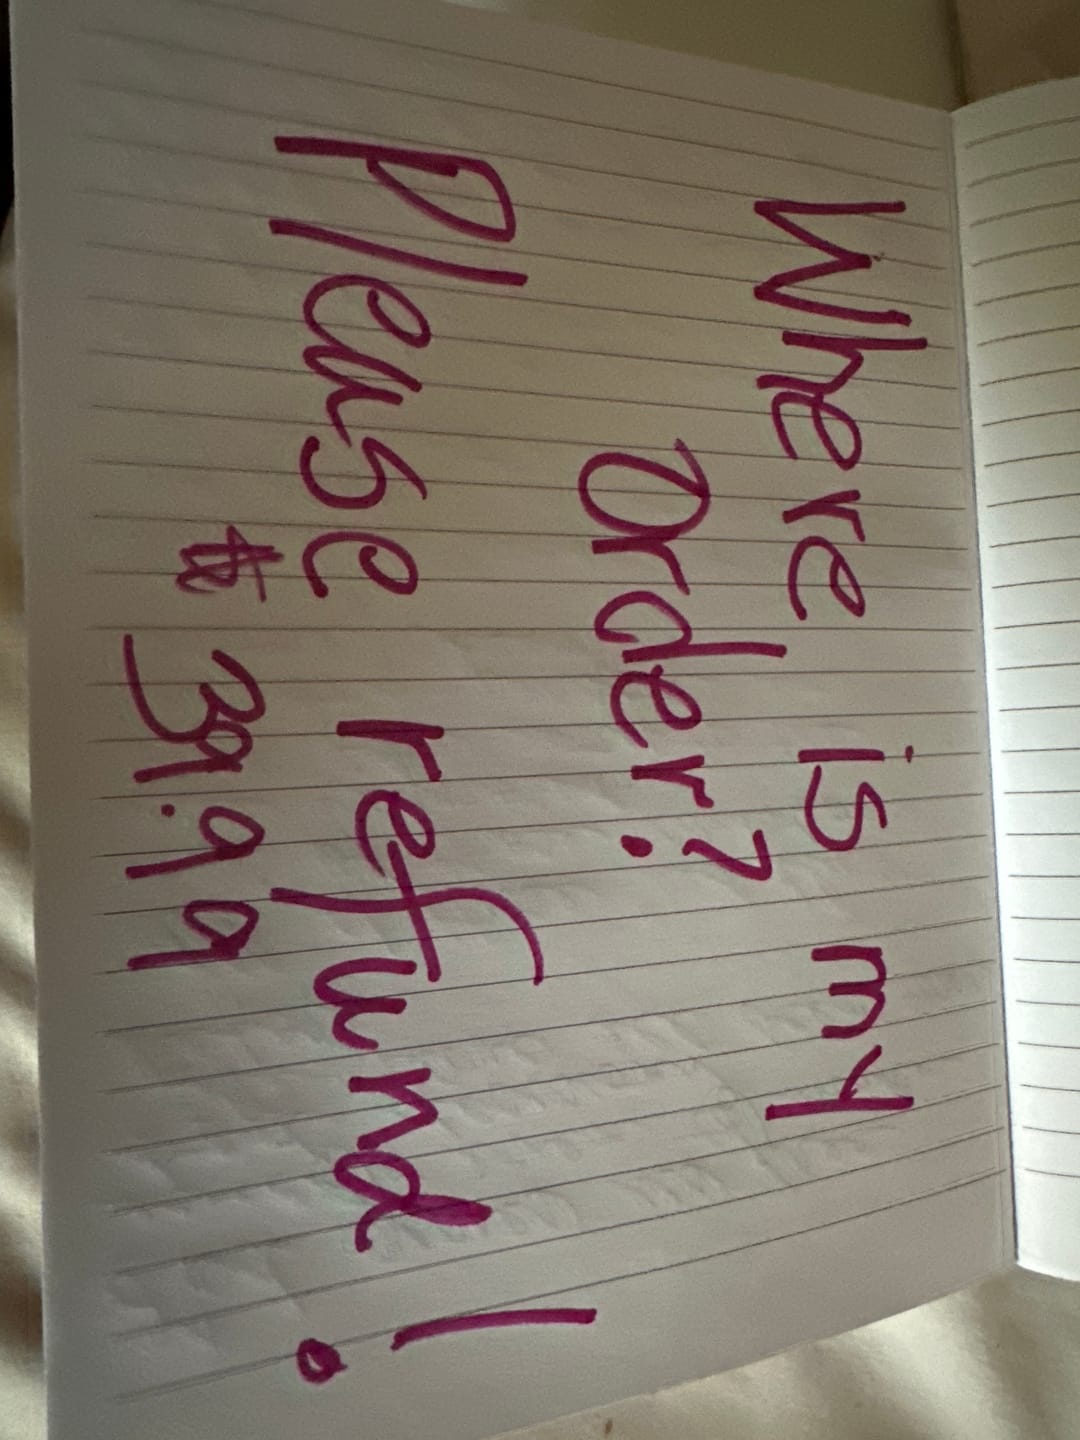 Where is my
Order?
Please refund!
$39.99